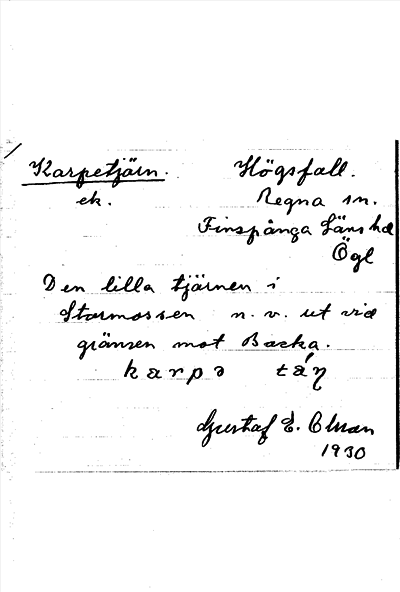 Karpetjärn. Högsfall.
ek. Regna sn.
Finspånga Läns hd
Ögl
Den lilla tjärnen i
Stormossen n.v. ut vid
gränsen mot Backa.
karpə
Gustaf E.
1930